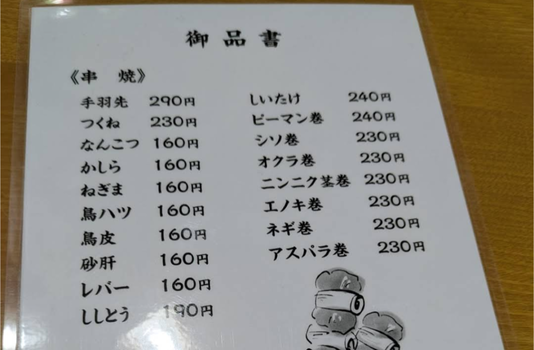 御品書
《串 焼》
手羽先 290円
つくね 230円
なんこつ 160円
かしら 160円
ねぎま 160円
鳥ハツ 160円
鳥皮 160円
砂肝 160円
レバー 160円
ししとう 190円
しいたけ 240円
ピーマン巻 240円
シソ巻 230円
オクラ巻 230円
ニンニク茎巻 230円
エノキ巻 230円
ネギ巻 230円
アスパラ巻 230円